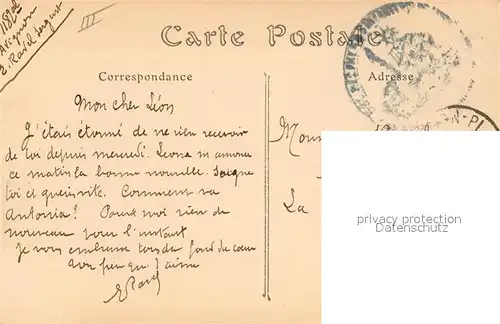 158e
Avignon
E. Ravel sergent
III
Carte Postale
Correspondance
Adresse
Mon cher Léon
J'étais étonné de ne rien recevoir
de toi depuis mercredi. Leona m'annonce
ce matin la bonne nouvelle. Soigne
toi et guéris vite. Comment va
Antonia? Pour moi rien de
nouveau pour l'instant
Je vous embrasse tous du fond du cœur
ton qui t'aime
E Ravel
Mons
La
privacy protection
www.oldthing.de